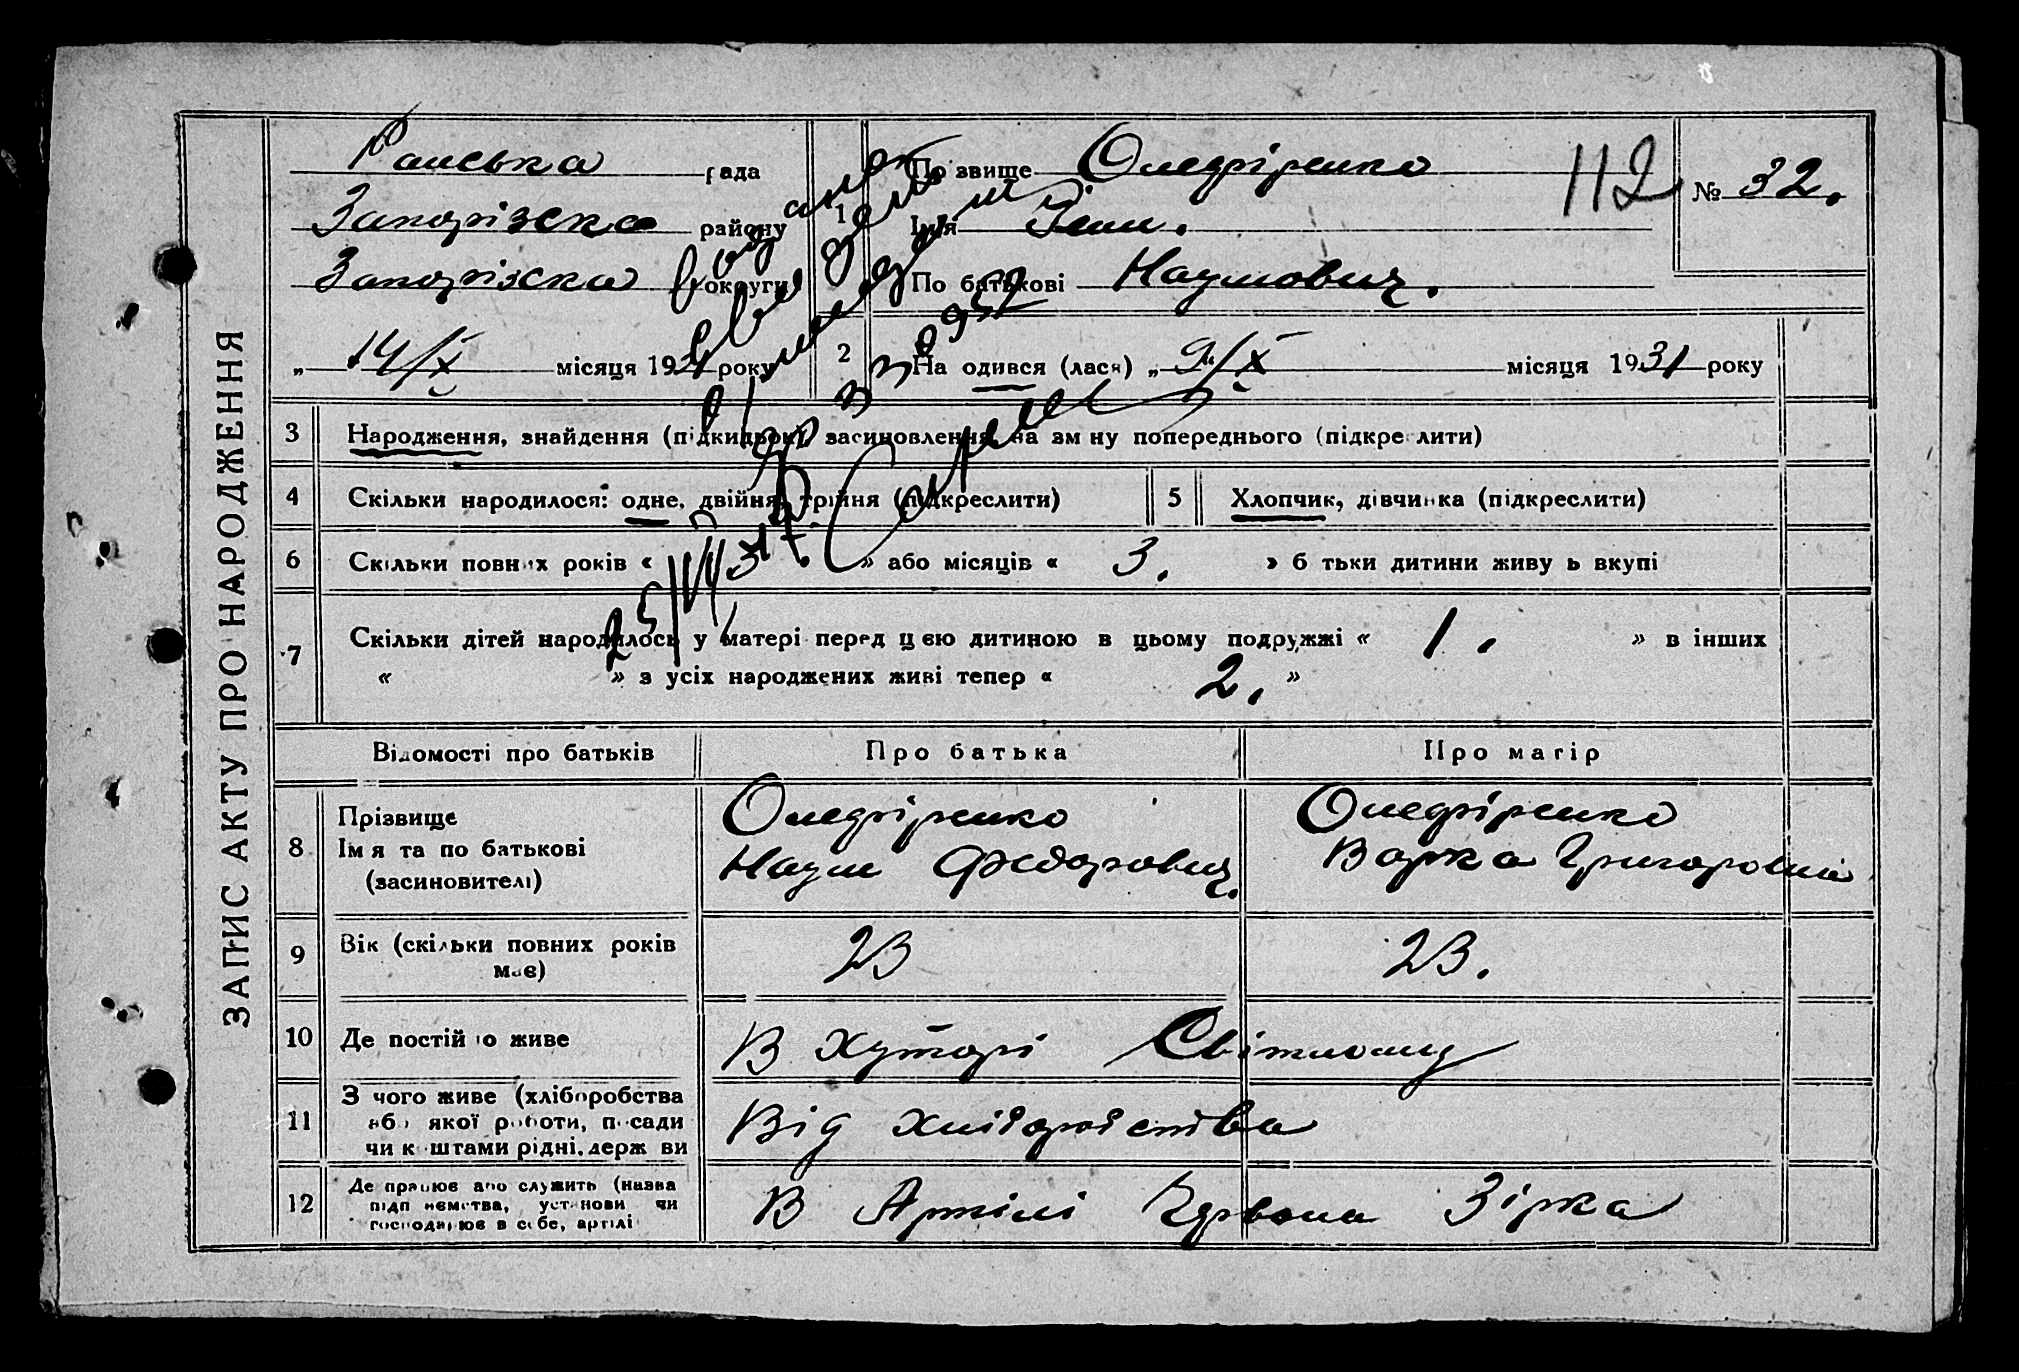 ЗАПИС АКТУ ПРО НАРОДЖЕННЯ
рада
Запорізска району
Запорізска округи
„ 14/X місяця 1931 року
№ 32.
112
1
Прізвище Олефіренко
Імя
По батькові Наумович.
2 Народився (лася) „ 9/X місяця 1931 року
3 Народження, знайдення (підкидьок), засиновлення, на зміну попереднього (підкреслити)
4 Скільки народилося: одне, двійня, трійня (підкреслити)
5 Хлопчик, дівчинка (підкреслити)
6 Скільки повних років « » або місяців « 3. » батьки дитини живуть вкупі
7 Скільки дітей народилось у матері перед цією дитиною в цьому подружжі « 1. » в інших
« » з усіх народжених живі тепер « 2. »
Відомості про батьків Про батька Про матір
8 Прізвище
Імя та по батькові
(засиновителі)
Олефіренко
Наум Федорович.
Олефіренко
Варка Григоровна
9 Вік (скільки повних років
має)
23 23.
10 Де постійно живе В Хуторі
11 З чого живе (хліборобства
або якої роботи, посади
чи коштами рідні, держави
Від хліборобства
12 Де працює або служить (назва
підприємства, установи чи
господарює в себе, артілі
В Артілі Червона Зірка